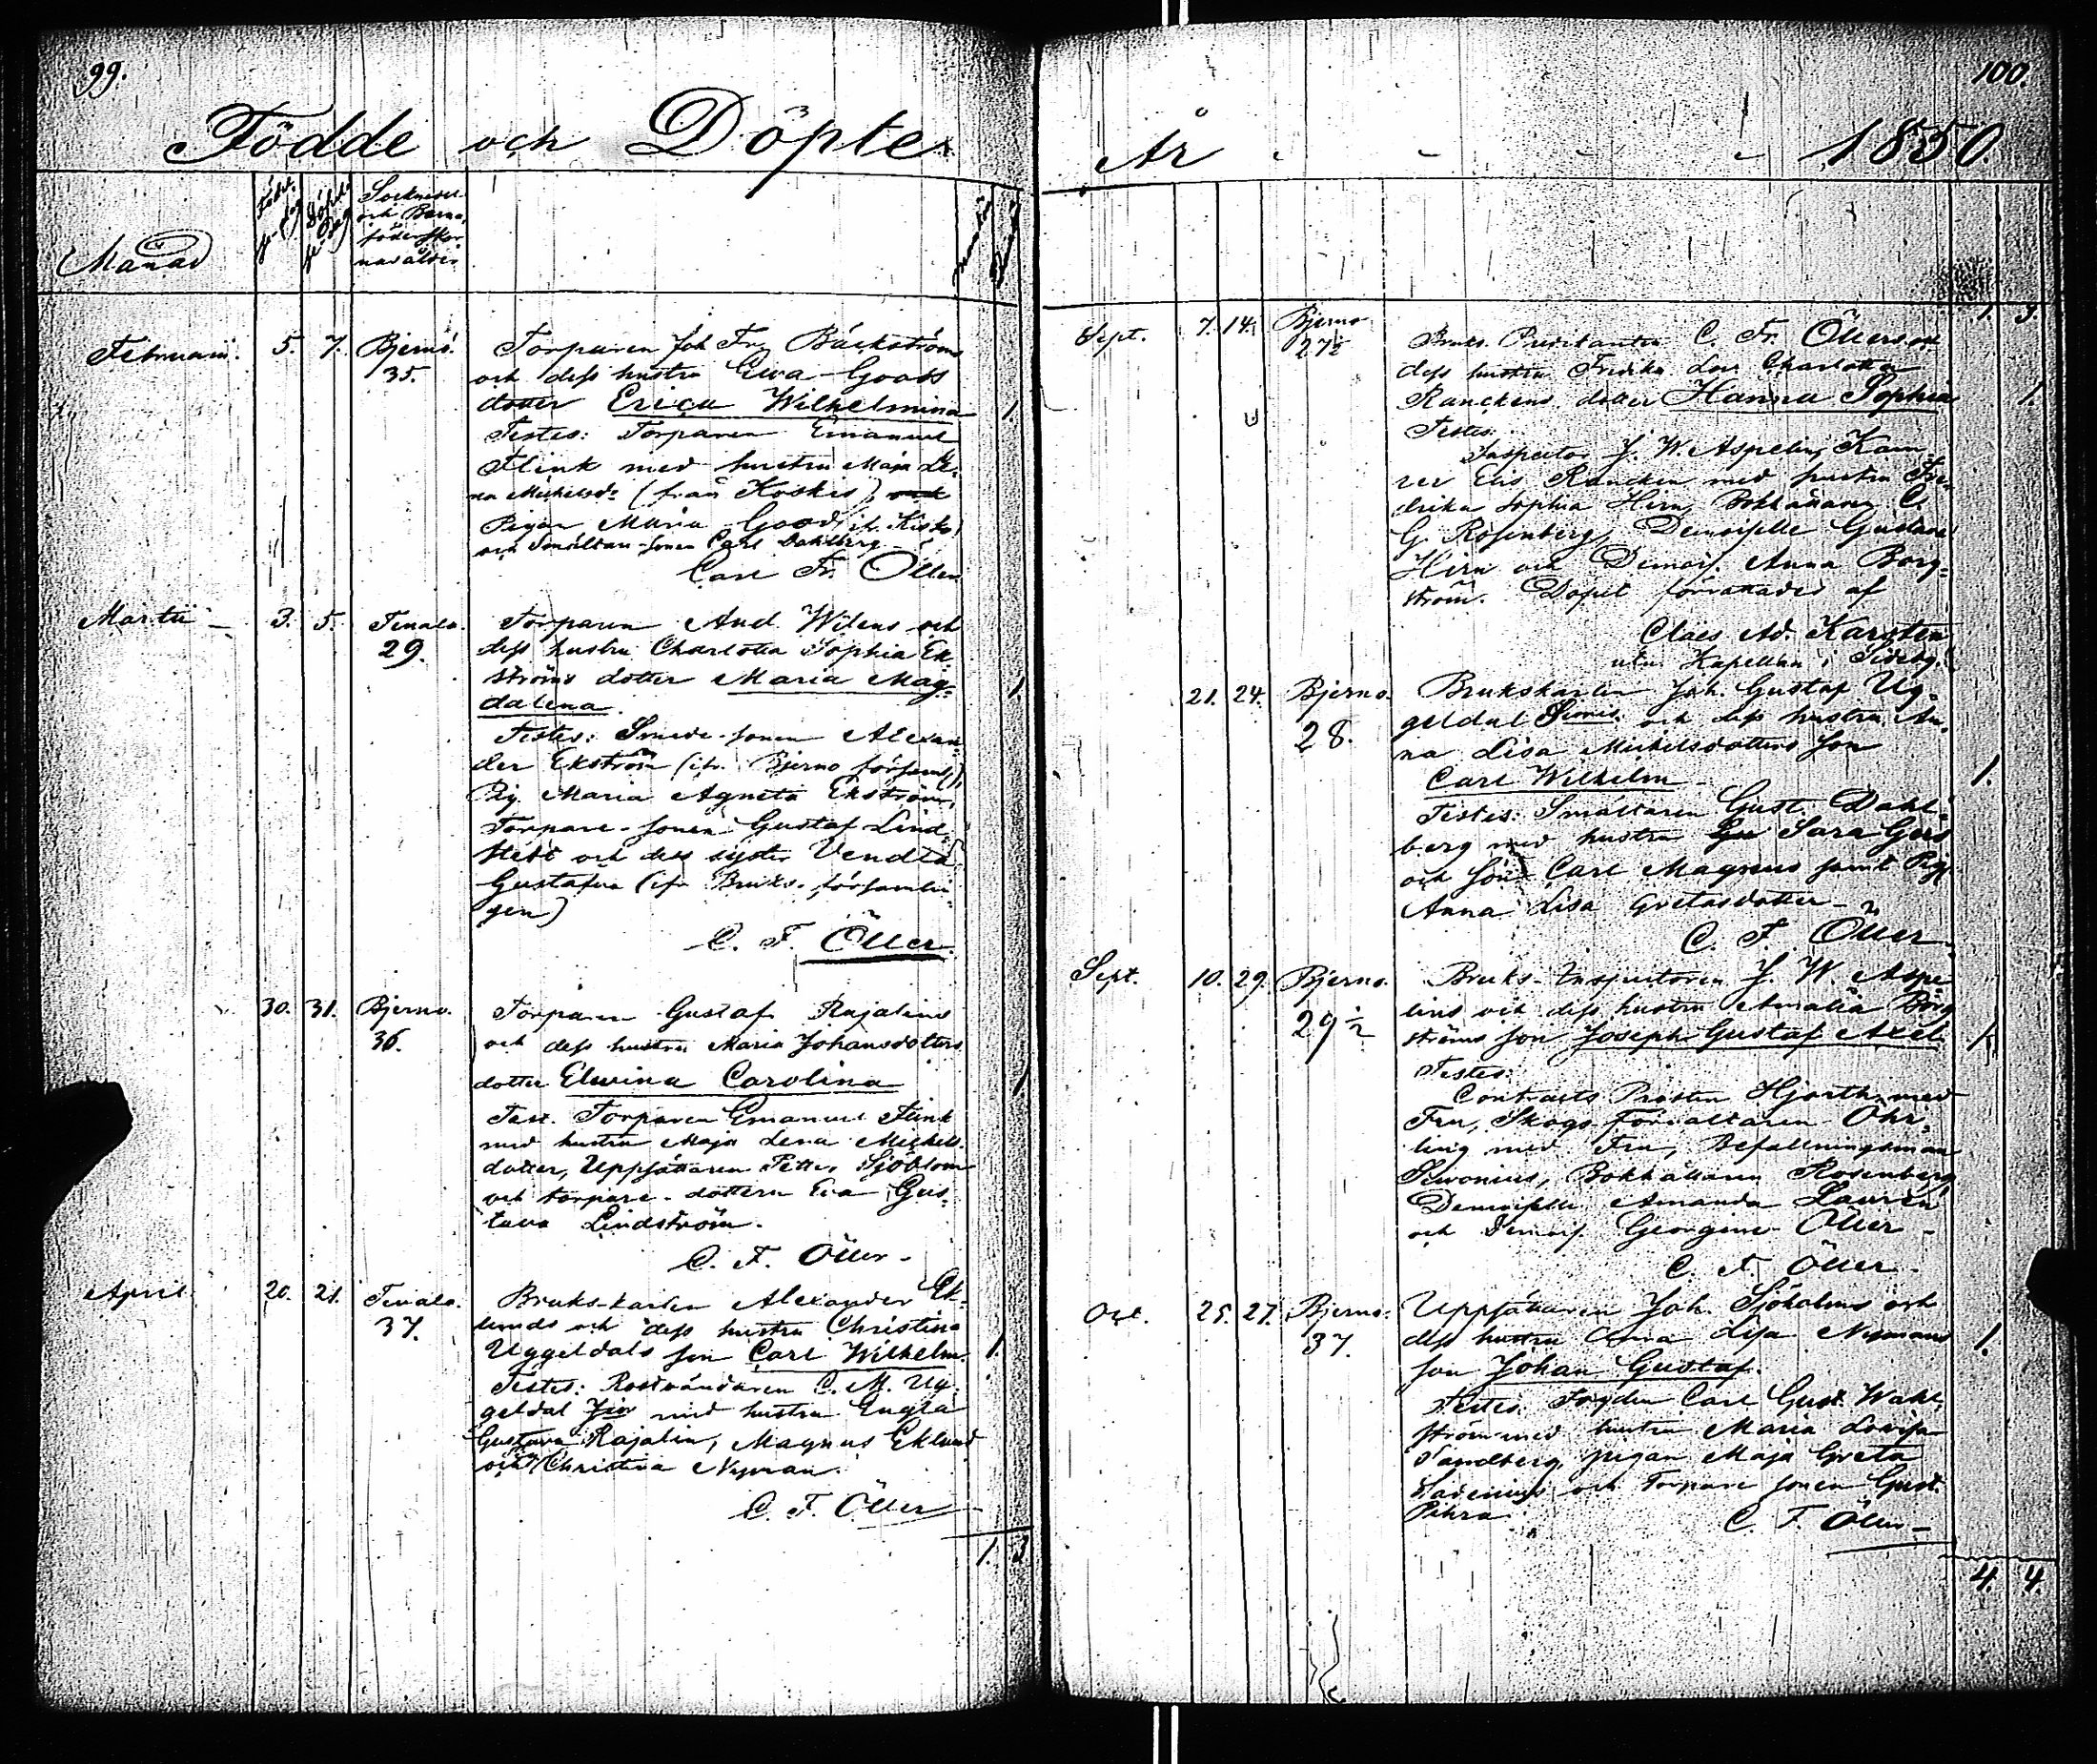 99.
Födde och Döpte
Månad
Födelse-dag
Döpelse-dag
Socknedel
och Barna-
föderskor-
nas ålder
Mankön
Qvinkön
Februarii. 5. 7. Bjerno. Torparen Joh. Fr. Bäckströms
35. och dess hustru Ewa Goods
dotter Erica Wilhelmina 1.
Testes: Torparen Emanuel
Flink med hustru Maja Le-
na Michelsdr (från Koskis), och
Pigan Maria Good, ifr. Kisko
och Smältare-sonen Carl Dahlberg
Carl Fr. Öller
Martii 3. 5. Tenala. Torparen And. Wilens och
29. dess hustru Charlotta Sophia Ek-
ströms dotter Maria Mag- 1.
dalena.
Testes: Smeds-sonen Alexan-
der Ekström (ifr. Bjerno församl.)
Pig. Maria Agneta Ekström,
Torpare-sonen Gustaf Lind-
stedt och dess syster Vendla
Gustafva (ifr. Bruks-församlin-
gen)
C. F. Öller.
30. 31. Bjerno. Torparen Gustaf Rajalins
36. och dess hustru Maria Johansdotters
dotter Elwina Carolina 1
Test. Torparen Emanuel Flink
med hustru Maja Lena Michels-
dotter, Uppsättaren Petter Sjöblom
och torpare-dottern Eva Gus-
tava Lindström.
C. F. Öller
April 20. 21. Tenala. Bruks-karlen Alexander Ek-
37. lunds och dess hustru Christina
Uggeldals son Carl Wilhelm. 1.
Testes: Rostvändaren C. M. Ug-
geldal Jior med hustru Engla
Gustava Rajalin, Magnus Eklund
och Christina Nyman.
C. F. Öller
1. 3
100.
År 1850.
1. 3.
Sept. 7. 14. Bjerno Bruks-Predikanten C. Fr. Öllers och
27½ dess hustru Fredika Lov. Charlotta
Ranckens dotter Hanna Sophia 1.
Testes:
Inspector J. W. Aspelin, Kam-
rer Elis Rancken med hustru Fre-
drika Sophia Hirn, Bokhållaren C.
G. Rosenberg, Demoiselle Gustava
Hirn och Demois. Anna Borg-
ström. Dopet förrättades af
Claes Ad. Karsten
Kapellan i Sideby.
21. 24. Bjerno. Brukskarlen Joh. Gustaf Ug-
28. geldal och dess hustru An-
na Lisa Michelsdotters son
Carl Wilhelm 1.
Testes: Smältaren Gust. Dahl-
berg med hustru Sara Gers
och son Carl Magnus samt Pig.
Anna Lisa Gretasdotter
C. F. Öller
Sept. 10. 29. Bjerno. Bruks-Inspectoren J. W. Aspe-
29½ lins och dess hustru Amalia Borg-
ströms son Joseph Gustaf Axel 1.
Testes:
Contracts Prosten Hjorth med
Fru, Skogs-Förvaltaren Öhr-
ling med Fru, Befallningsman
Bokhållaren Rosenberg,
Demoiselle Amanda Lauren
och Demois. Georgine Öller
C. F. Öller
Oct. 25. 27. Bjerno. Uppsättaren Joh. Sjöholms och
37. dess hustru Anna Lisa Nymans 1.
son Johan Gustaf.
Testes. Fogden Carl Gust. Wahl-
ström med hustru Maria Lovisa
Sandberg, pigan Maja Greta
och Torpare sonen Gust.
Pihra
C. F. Öller
4. 4.